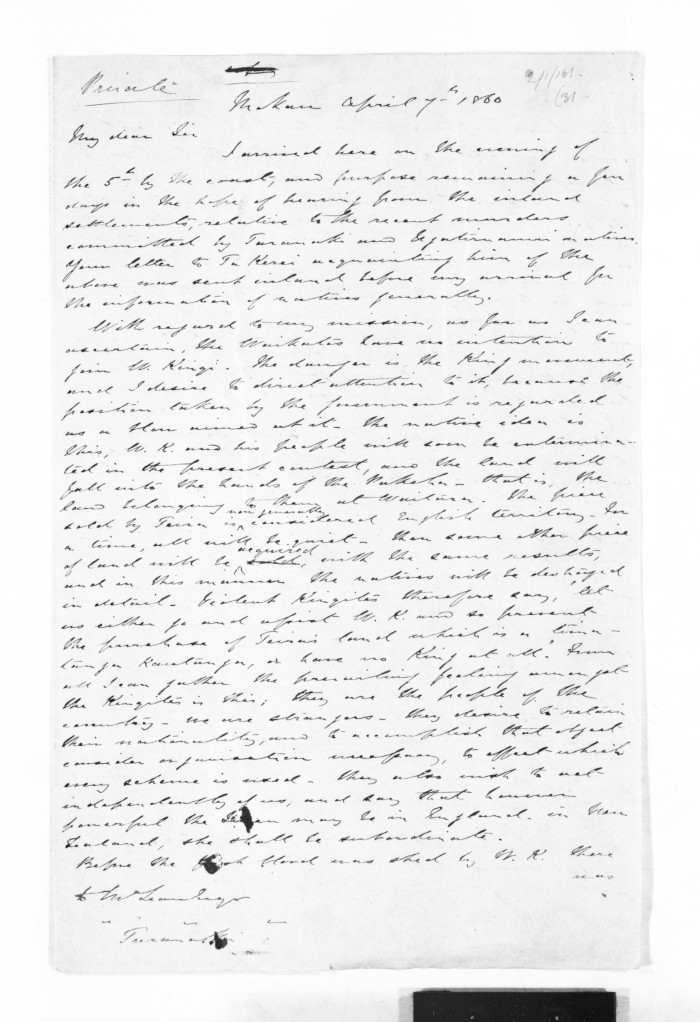 Private
2/1/161
(3)
Mokau April 7th 1860
My dear Sir
I arrived here on the evening of
the 5th by the coast, and purpose remaining a few
days in the hope of hearing from the inland
settlements, relative to the recent murders
committed by Taranaki and Ngatiruanui natives.
Your letter to Te Kerei acquainting him of the
above was sent inland before my arrival for
the information of natives generally.
With regard to my mission, as far as I can
ascertain, the Waikatos have no intention to
join W. Kingi. The danger is the King movement,
and I desire to direct attention to it, because the
position taken by the government is regarded
as a blow aimed at it. The native idea is
this, W. K. and his people will soon be extermina-
ted in the present contest, and the land will
fall into the hands of the Pakeha - that is, the
land belonging to them at Waitara. The piece
sold by Teira is now generally considered English territory. For
a time, all will be quiet - then some other piece
of land will be acquired, with the same results,
and in this manner the natives will be destroyed
in detail. Violent Kingites therefore say, "let
us either go and assist W. K. and so prevent
the purchase of Teira's land which is a tima-
tanga kautanga, or have no King at all." From
all I can gather the prevailing feeling amongst
the Kingites is this; they are the people of the
country - we are strangers - they desire to retain
their nationality, and to accomplish that object
consider organisation necessary, to effect which
every scheme is used - they also wish to act
independently of us, and say that however
powerful the Queen may be in England - in New
Zealand, she shall be subordinate.
Before the first blood was shed by W. K. there
was
to McLean Esqr
" " "
Taranaki